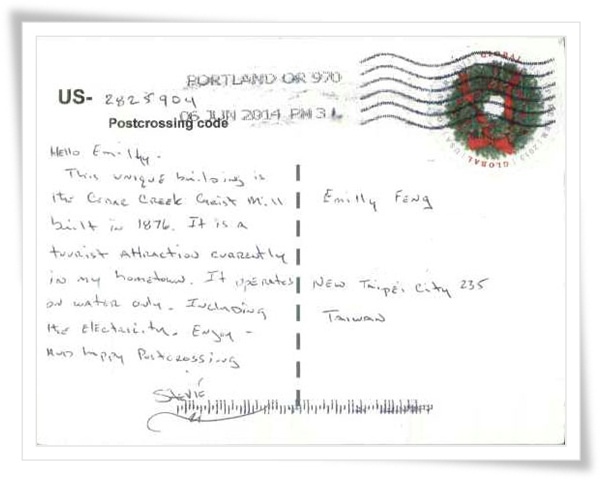 PORTLAND OR 970
06 JUN 2014 PM 3 L
US- 2825904
Postcrossing code
GLOBAL
GLOBAL
Hello Emilly.
This unique building is
the Cedar Creek Grist Mill
built in 1876. It is a
tourist attraction currently
in my hometown. It operates
on water only. Including
the electricity. Enjoy -
And happy Postcrossing
Stevie
Emilly FENG
NEW Taipei City 235
TAIWAN